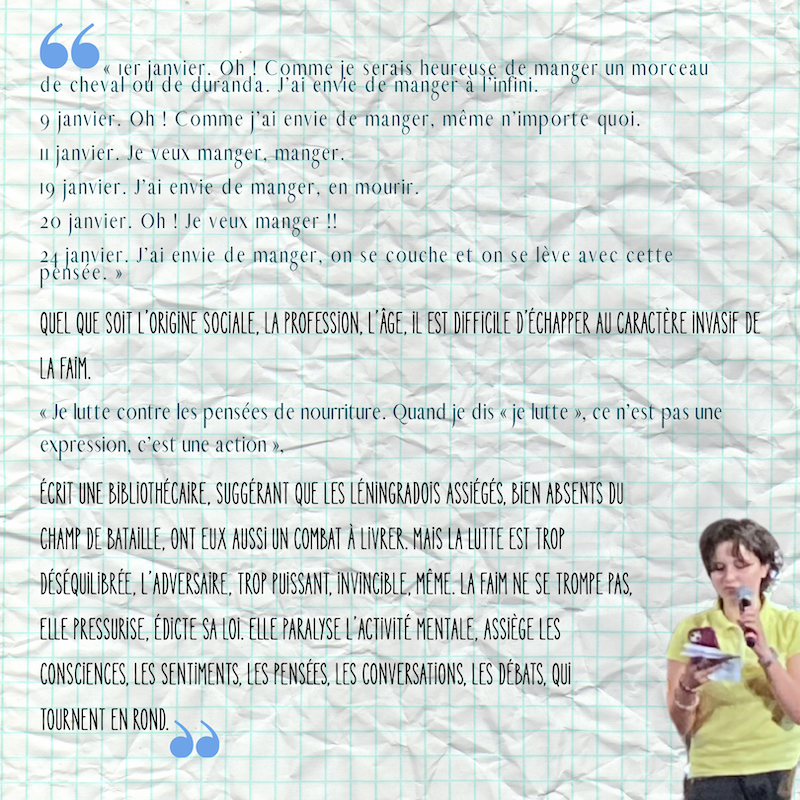 « 1er janvier. Oh ! Comme je serais heureuse de manger un morceau
de cheval ou de duranda. J'ai envie de manger à l'infini.
9 janvier. Oh ! Comme j'ai envie de manger, même n'importe quoi.
11 janvier. Je veux manger, manger.
19 janvier. J'ai envie de manger, en mourir.
20 janvier. Oh ! Je veux manger !!
24 janvier. J'ai envie de manger, on se couche et on se lève avec cette
pensée. »
QUEL QUE SOIT L'ORIGINE SOCIALE, LA PROFESSION, L'ÂGE, IL EST DIFFICILE D'ÉCHAPPER AU CARACTÈRE INVASIF DE
LA FAIM.
« Je lutte contre les pensées de nourriture. Quand je dis « je lutte », ce n'est pas une
expression, c'est une action »,
ÉCRIT UNE BIBLIOTHÉCAIRE, SUGGÉRANT QUE LES LÉNINGRADOIS ASSIÉGÉS, BIEN ABSENTS DU
CHAMP DE BATAILLE, ONT EUX AUSSI UN COMBAT À LIVRER. MAIS LA LUTTE EST TROP
DÉSÉQUILIBRÉE, L'ADVERSAIRE, TROP PUISSANT, INVINCIBLE, MÊME. LA FAIM NE SE TROMPE PAS,
ELLE PRESSURISE, ÉDICTE SA LOI. ELLE PARALYSE L'ACTIVITÉ MENTALE, ASSIÈGE LES
CONSCIENCES, LES SENTIMENTS, LES PENSÉES, LES CONVERSATIONS, LES DÉBATS, QUI
TOURNENT EN ROND.